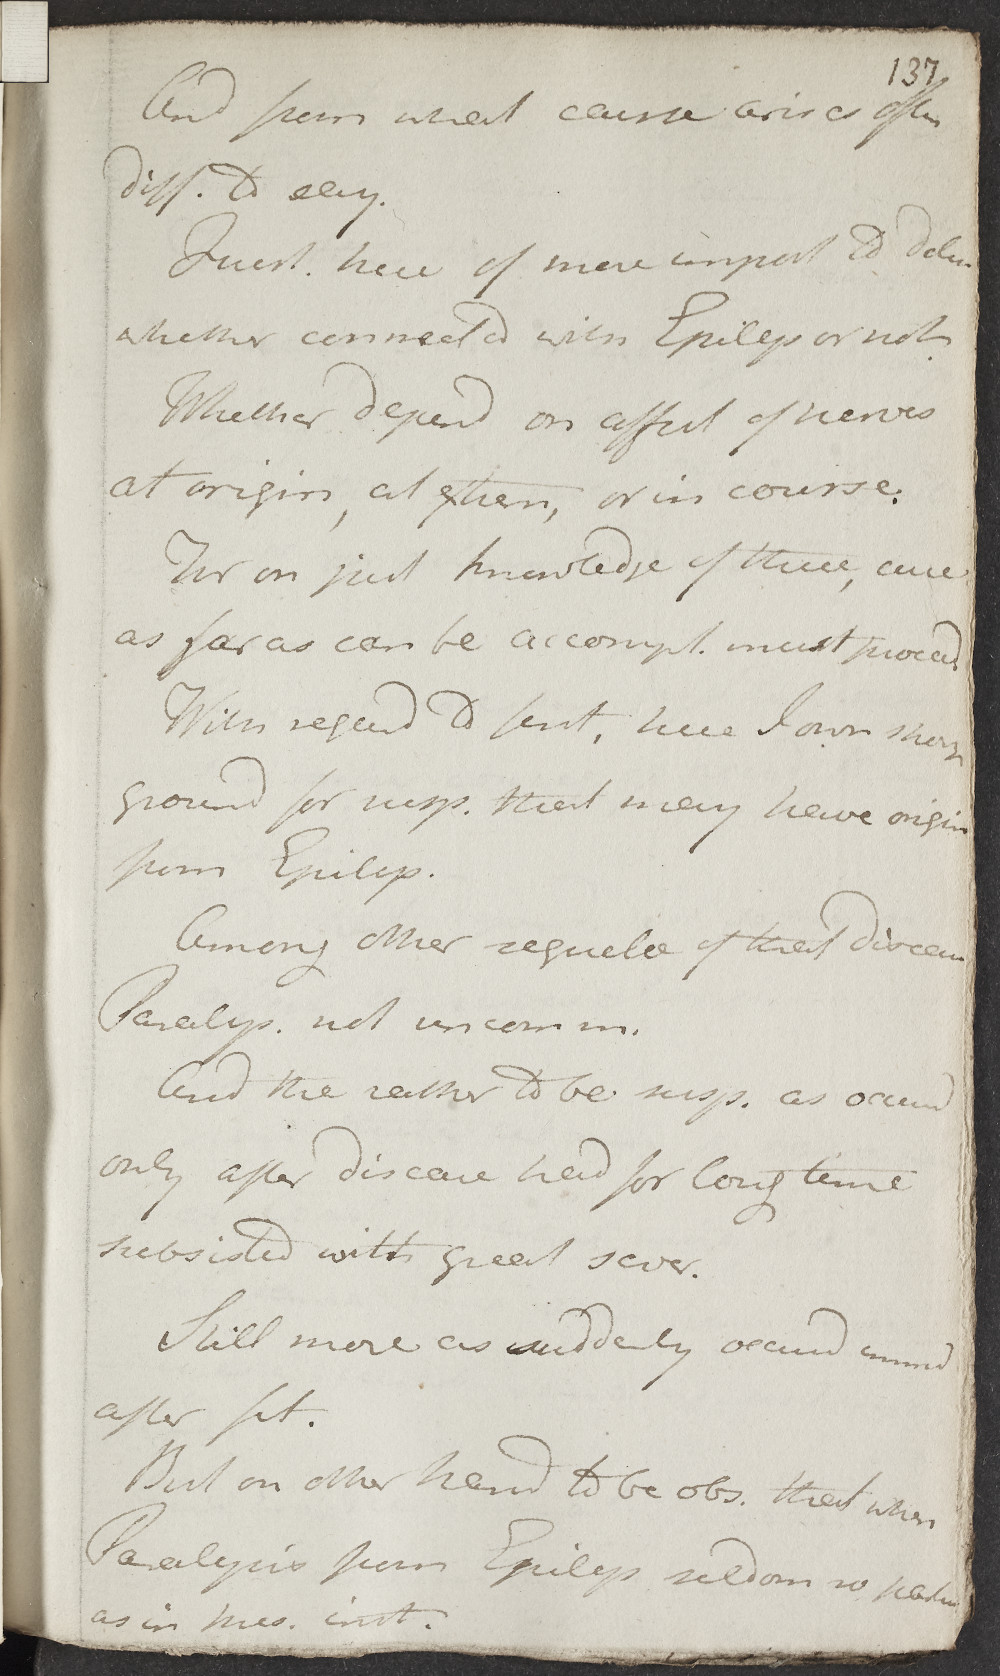 137
And from what cause arises often
diff. to say.
Quest. here of more import to deter
whether connected with Epilep or not.
Whether depend on affect of nerves
at origin, at extrem, or in course.
For on just knowledge of these, cure
as far as can be accompl. must proceed
With regard to first, here I own strong
ground for susp. that may have origin
from Epilep.
Among other sequelae of that disease
Paralys. not uncomm.
And the rather to be susp. as occurred
only after disease had for long time
subsisted with great sever.
Still more as suddenly occurred immed
after fit.
But on other hand to be obs. that when
Paralysis from Epilep seldom so
as in pres. inst.